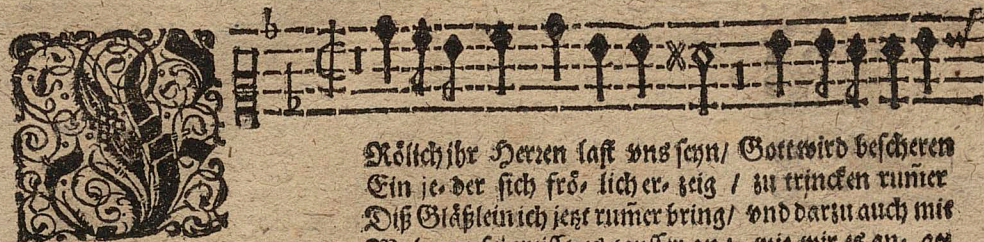 Rölich ihr Herren last vns seyn/ Gott wird bescheren
Ein je- der sich frö- lich er- zeig / zu trincken rum̃er
Diß Gläßlein ich jetzt rum̃er bring/ vnd darzu auch mit